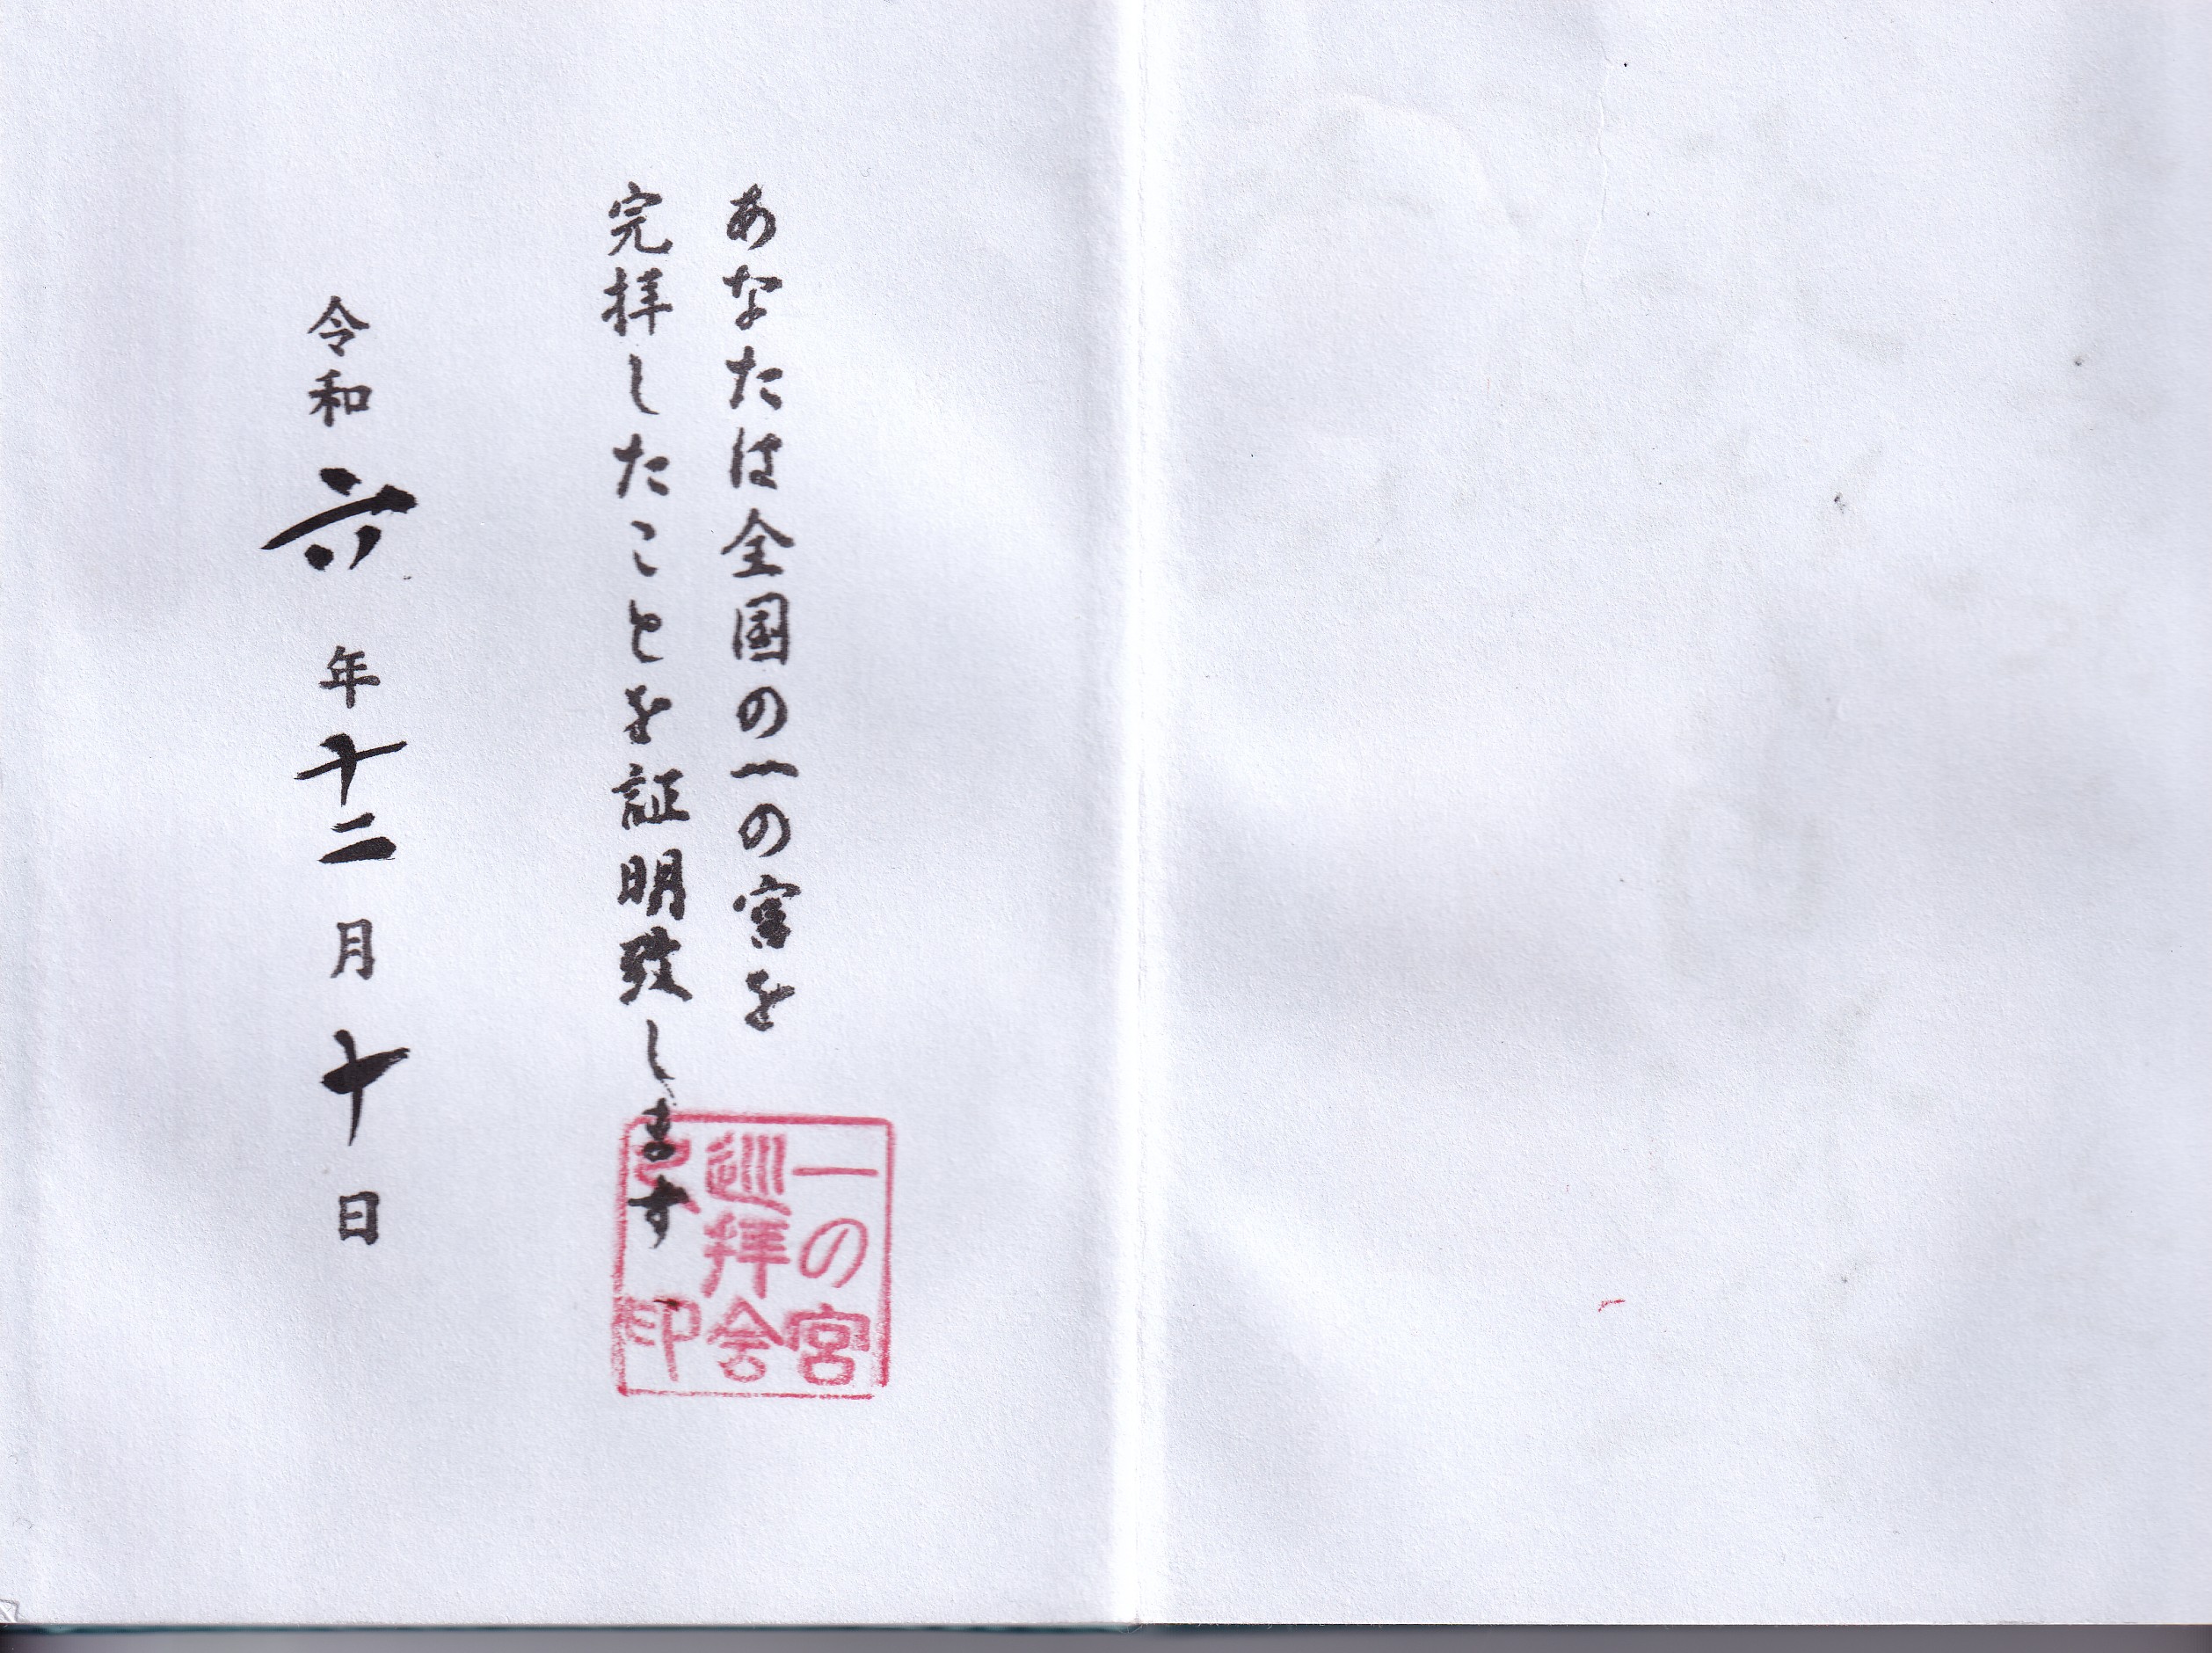 あなたは全国の一の宮を
完拝したことを証明致します
一の宮
巡拝会
之印
令和六年十二月十日